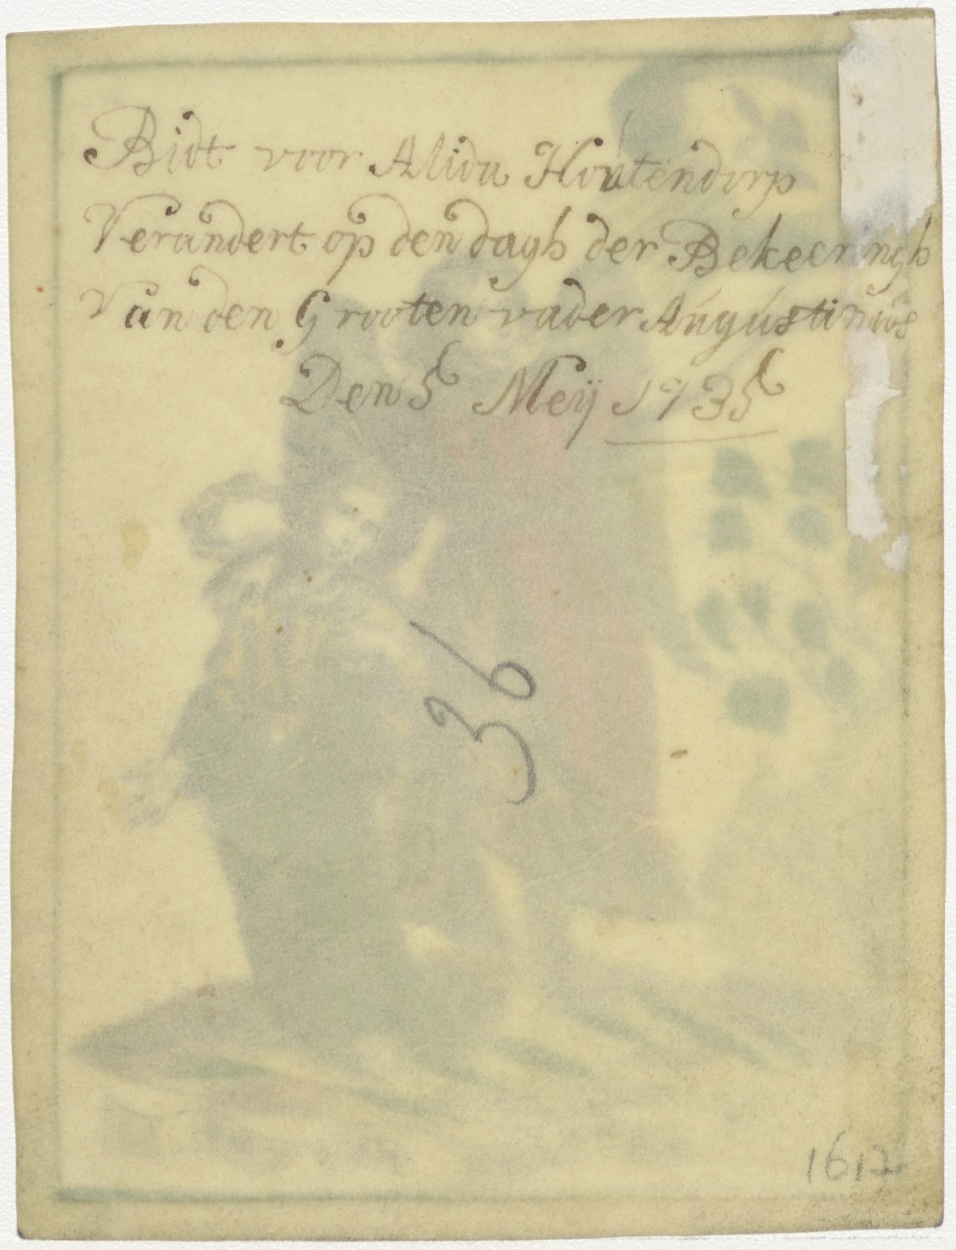 Bidt voor Alida Houtendorp
Verandert op den dagh der Bekeeringh
Van den Grooten vader Augustinus
Den 5 Meij 1735
36
1617